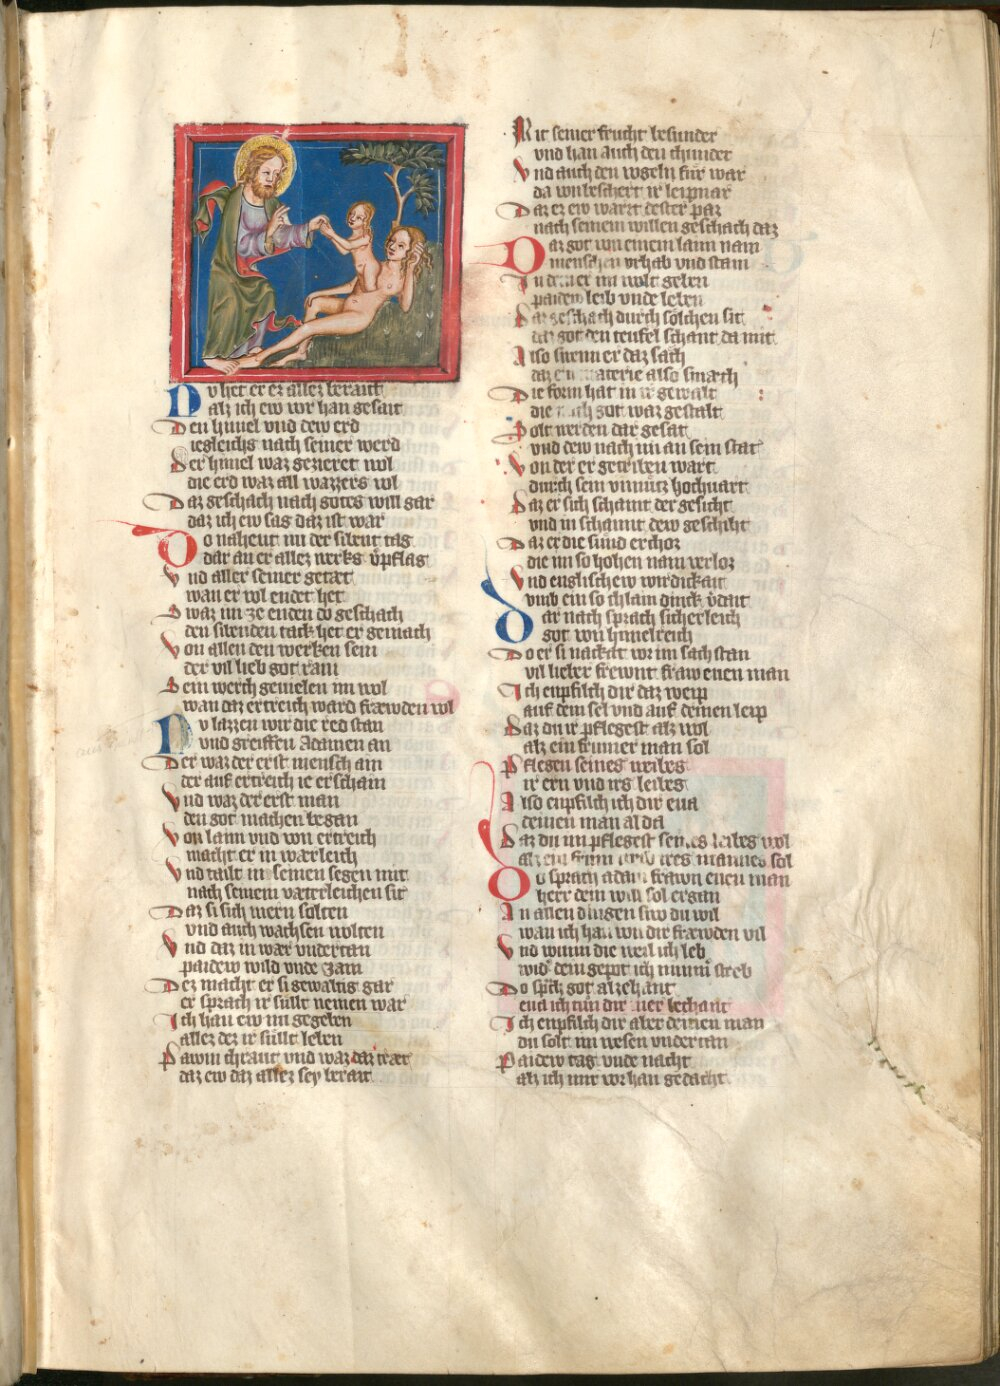 Nv het er ez allez berait
als ich ew vor han gesait
Den himel vnd dew erd
iegleichs nach seiner werd
Der himel waz gezieret wol
die erd waz all wazzers vol
Daz geschach nach gotes will gar
daz ich ew sag daz ist war
Do nahent im der sibent tag
dar an er allez werks v̈pflag
Vnd aller seiner getæt
wan er wol endet het
Swaz im ze enden do geschach
den sibenden tack het er gemach
Von allen den werken sein
der vil lieb got rain
Sein werch gevielen im wol
wan daz ertreich ward fræwden vol
Nv lazzen wir die red stan
vnd greiffen Adamen an
Der waz der erst mensch ain
der auf ertreich ie erschain
Vnd waz der erst man
den got machen began
Von laim vnd von ertreich
macht er in wærleich
Vnd tailt in seinen segen mit
nach seinem væterleichen sit
Daz si sich mern solten
vnd auch wachsen wolten
Vnd daz in wær vndertan
paidew wild vnde zam
Dez macht er si gewaltig gar
er sprach ir süllt nemen war
Ich han ew im gegeben
allez dez ir süllt leben
Pawm chraut vnd waz daz træt
daz ew daz allez sey berait
Mit seiner frucht besunder
vnd han auch den chunder
Vnd auch den vogeln für war
da wil beschert ir leipnar
Daz er ew wart dester paz
nach seinem willen geschach daz
Daz got von einem laim nam
menschen vrhab vnd stam
In dem er im wolt geben
paidew leib vnde leben
Daz geschach durch solchen sit
daz got den teufel schant da mit
Also swenn er daz sach
daz ein materie also smæch
Die form hat in ir gewalt
die nach got waz gestalt
Solt werden dar gesat
vnd dew nach im an sein stat
Von der er getriben wart
durch sein vnnütz hochuart
Daz er sich schamt der gesicht
vnd in schamt dew geschiht
Daz er die sünd erchoz
die im so hohen nam verloz
Vnd englischew wirdickait
vmb ein so chlain dinck v̈dait
Dar nach sprach sicherleich
got von himelreich
Do er si nackat vor im sach stan
vil lieber frewnt frawen euen man
Ich enpfilch dir daz weip
auf dein sel vnd auf deinen leip
Daz du ir pflegest als wol
als ein frumer man sol
Pflegen seines weibes
ir ern vnd irs leibes
Also enpfilch ich dir eua
deinen man al da
Daz du im pflegest seines leibes wol
als ein frum weib ires mannes sol
Do sprach adam frawn euen man
herr dein will sol ergan
An allen dingen swo du wil
wan ich han von dir fræwden vil
Vnd wunn die weil ich leb
wid' dein gepot ich nimm̄ streb
Do sp̄ch got alzehant
eua ich tün dir mer bechant
Ich enpfilch dir aber deinen man
du solt im wesen vndertan
Paidew tag vnde nacht
als ich mir vor han gedacht